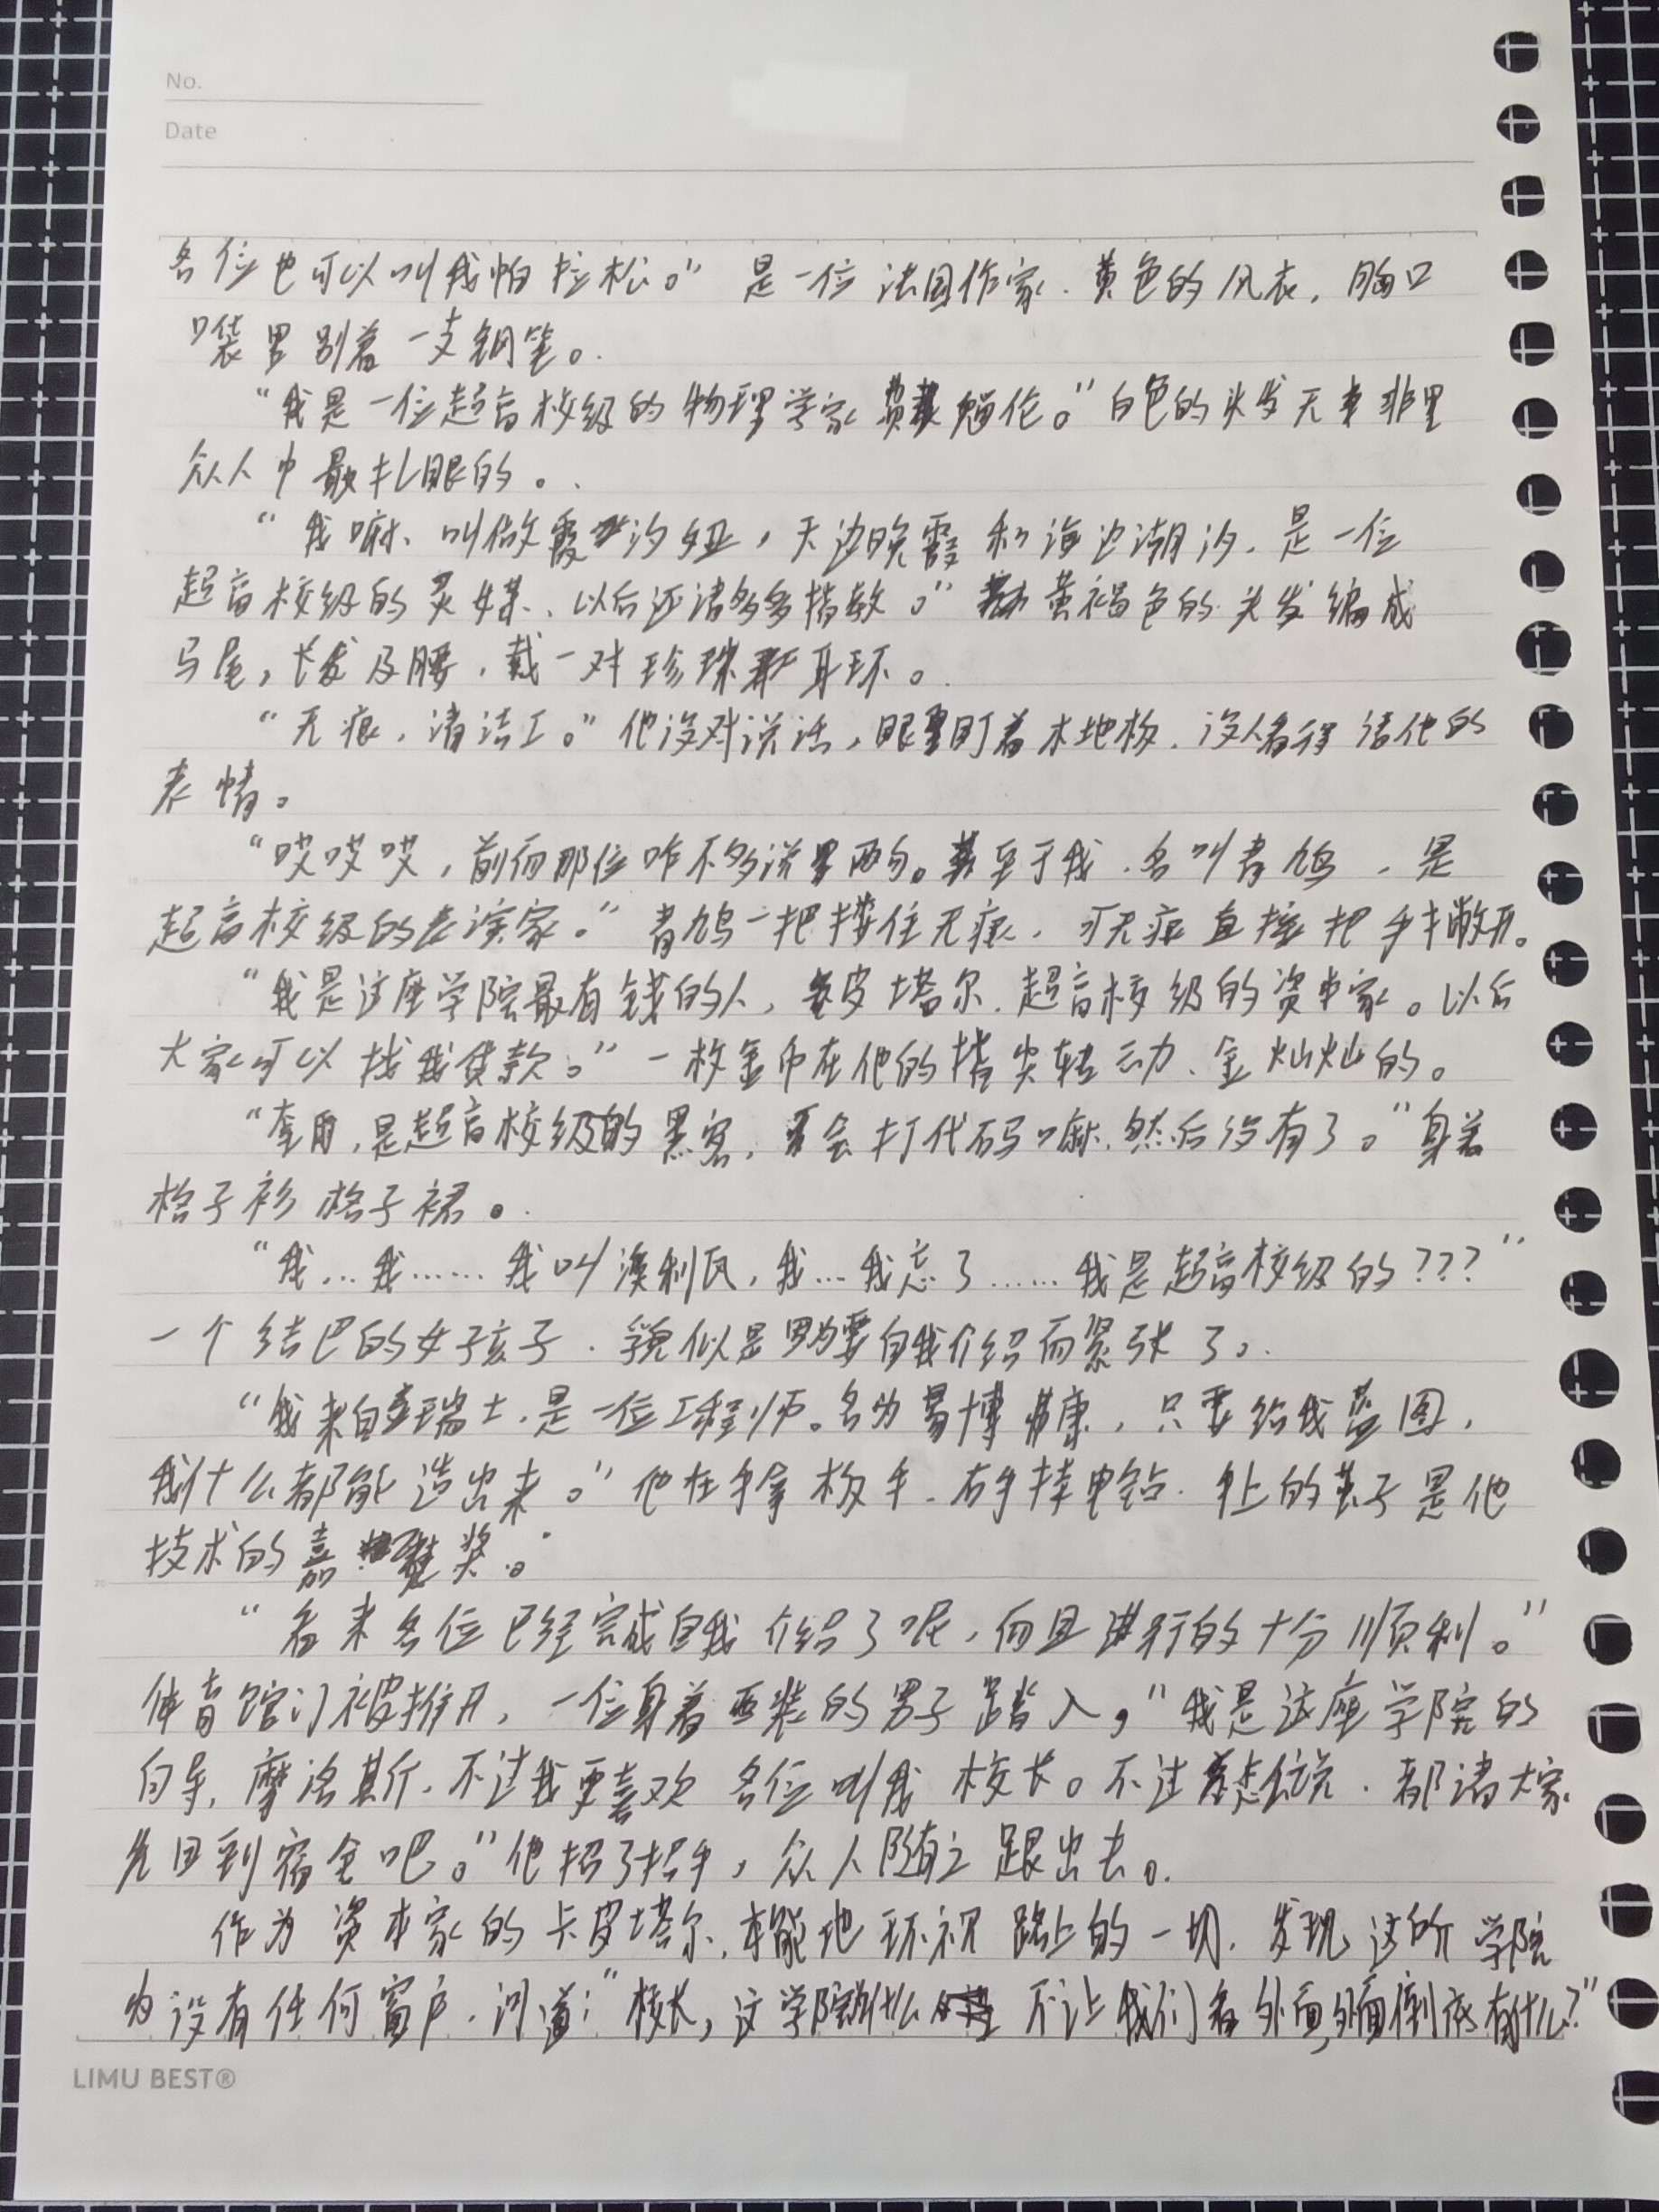 No.
Date
各位也可以叫我帕拉松。”是一位法国作家.黄色的风衣,胸口
口袋里别着一支钢笔。
“我是一位超高校级的物理学家 勉伦。”白色的头发无非是
众人中最扎眼的。
“我嘛、叫做霞汐妞,天边晚霞和海边潮汐.是一位
超高校级的灵媒、以后还请多多指教。”黄褐色的头发编成
马尾,长发及腰.戴一对珍珠耳环。
“无痕.清洁工。”他没对说话,眼盯着木地板.没人看得清他的
表情。
“哎哎哎,前面那位咋不多说两句。至于我.名叫青鸠.是
超高校级的表演家。”青鸠一把搂住无痕.可无痕直接把手撇开。
“我是这座学院最有钱的人,皮塔尔.超高校级的资本家。以后
大家可以找我贷款。”一枚金币在他的指尖转动、金灿灿的。
“奎雨,是超高校级的黑客,会打代码嘛.然后没有了。”身着
格子衫格子裙。
“我...我......我叫澳利瓦,我...我忘了......我是超高校级的???”
一个结巴的女孩子.貌似是因为要自我介绍而紧张了。
“我来自瑞士.是一位工程师。名为易博弗康,只要给我蓝图,
我什么都能造出来。”他左手拿板手.右手持电钻.手上的茧子是他
技术的嘉奖。
“看来各位已经完成自我介绍了呢,而且进行的十分顺利。”
体育馆门被推开,一位身着西装的男子踏入,“我是这座学院的
向导,摩洛斯.不过我更喜欢各位叫我校长。不过怎么说.都请大家
先回到宿舍吧。”他招了招手,众人随之跟出去。
作为资本家的卡皮塔尔,本能地环视路上的一切.发现这所学院
内没有任何窗户.问道:“校长,这学院为什么不让我们看外面,外面倒底有什么?”
LIMU BEST®